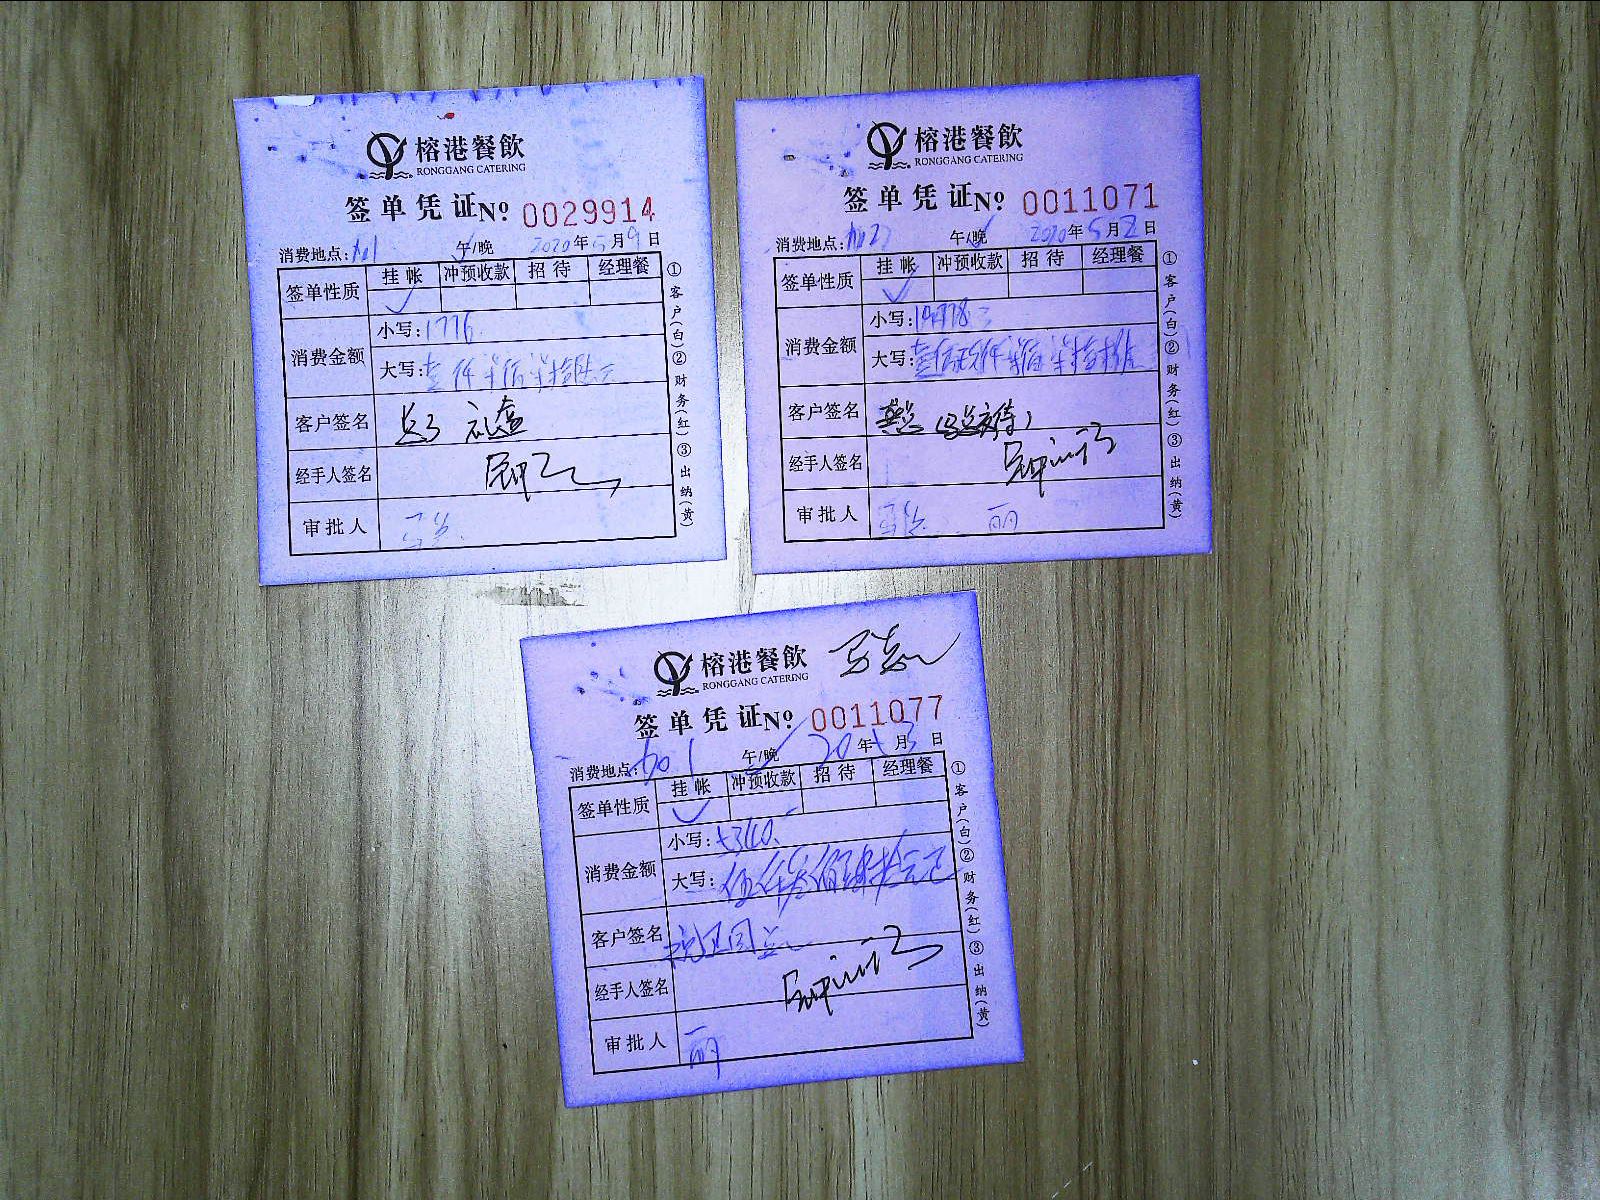 榕港餐飲
RONGGANG CATERING
签单凭证 № 0029914
消费地点: 午/晚 2020年5月9日
签单性质 挂帐 冲预收款 招待 经理餐
消费金额 小写:1776
大写:壹仟柒佰柒拾陆元
客户签名
经手人签名
审批人
①客户(白)②财务(红)③出纳(黄)
榕港餐飲
RONGGANG CATERING
签单凭证 № 0011071
消费地点: 午/晚 2020年5月2日
签单性质 挂帐 冲预收款 招待 经理餐
消费金额 小写:
大写:
客户签名
经手人签名
审批人 丽
①客户(白)②财务(红)③出纳(黄)
榕港餐飲
RONGGANG CATERING
签单凭证 № 0011077
消费地点: 午/晚 20年 月3日
签单性质 挂帐 冲预收款 招待 经理餐
消费金额 小写:5340.
大写:伍仟叁佰肆拾元正
客户签名
经手人签名
审批人 丽
①客户(白)②财务(红)③出纳(黄)